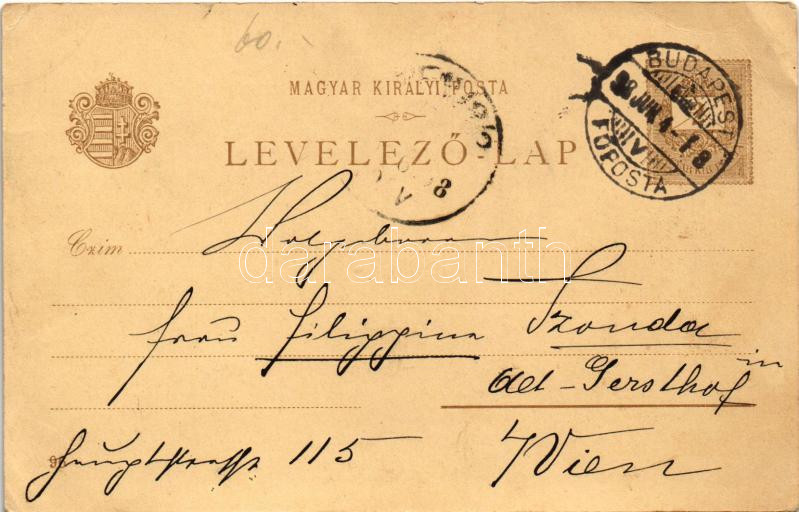 60.-
MAGYAR KIRÁLYI POSTA
LEVELEZŐ-LAP
BUDAPEST
98 JUN 4
FŐPOSTA
Czim
darabanth
Frau Filippine Szonda
in
Gersthof
Hauptstrasse 115
Wien